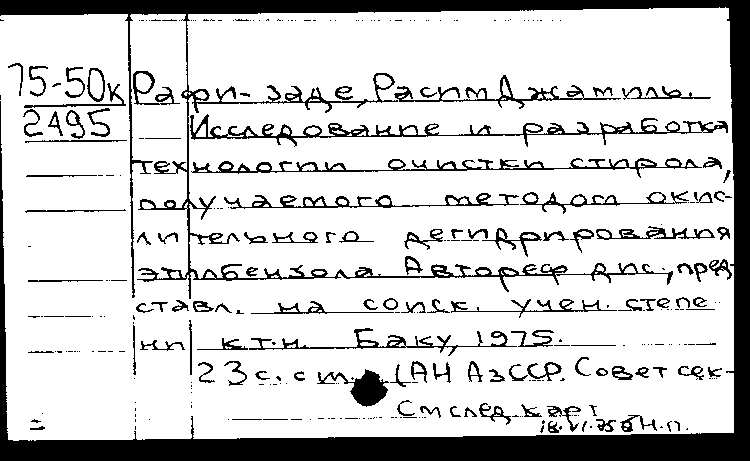 75-50к Рафи-заде, Расим Джамиль.
2495 Исследование и разработка
технологии очистки стирола,
получаемого методом окис-
лительного дегидрирования
этилбензола. Автореф дис., пред-
ставл. на соиск. учен. степе
ни к.т.н. Баку, 1975.
23 с. с (АН АзССР. Совет сек-
См след карт
18.VI.75 Н.П.